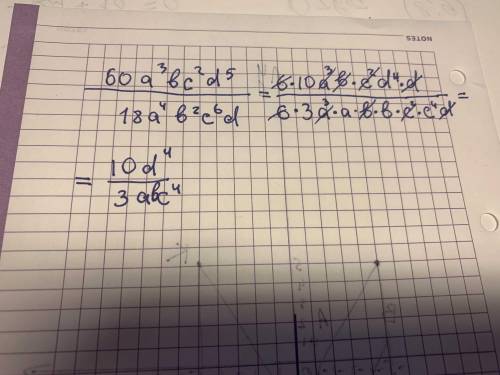 NOTES
60a³bc²d⁵ / 18a⁴b²c⁶d = 6·10a³b·c²d⁴·d / 6·3a³·a·b·b·c²·c⁴d =
= 10d⁴ / 3abc⁴